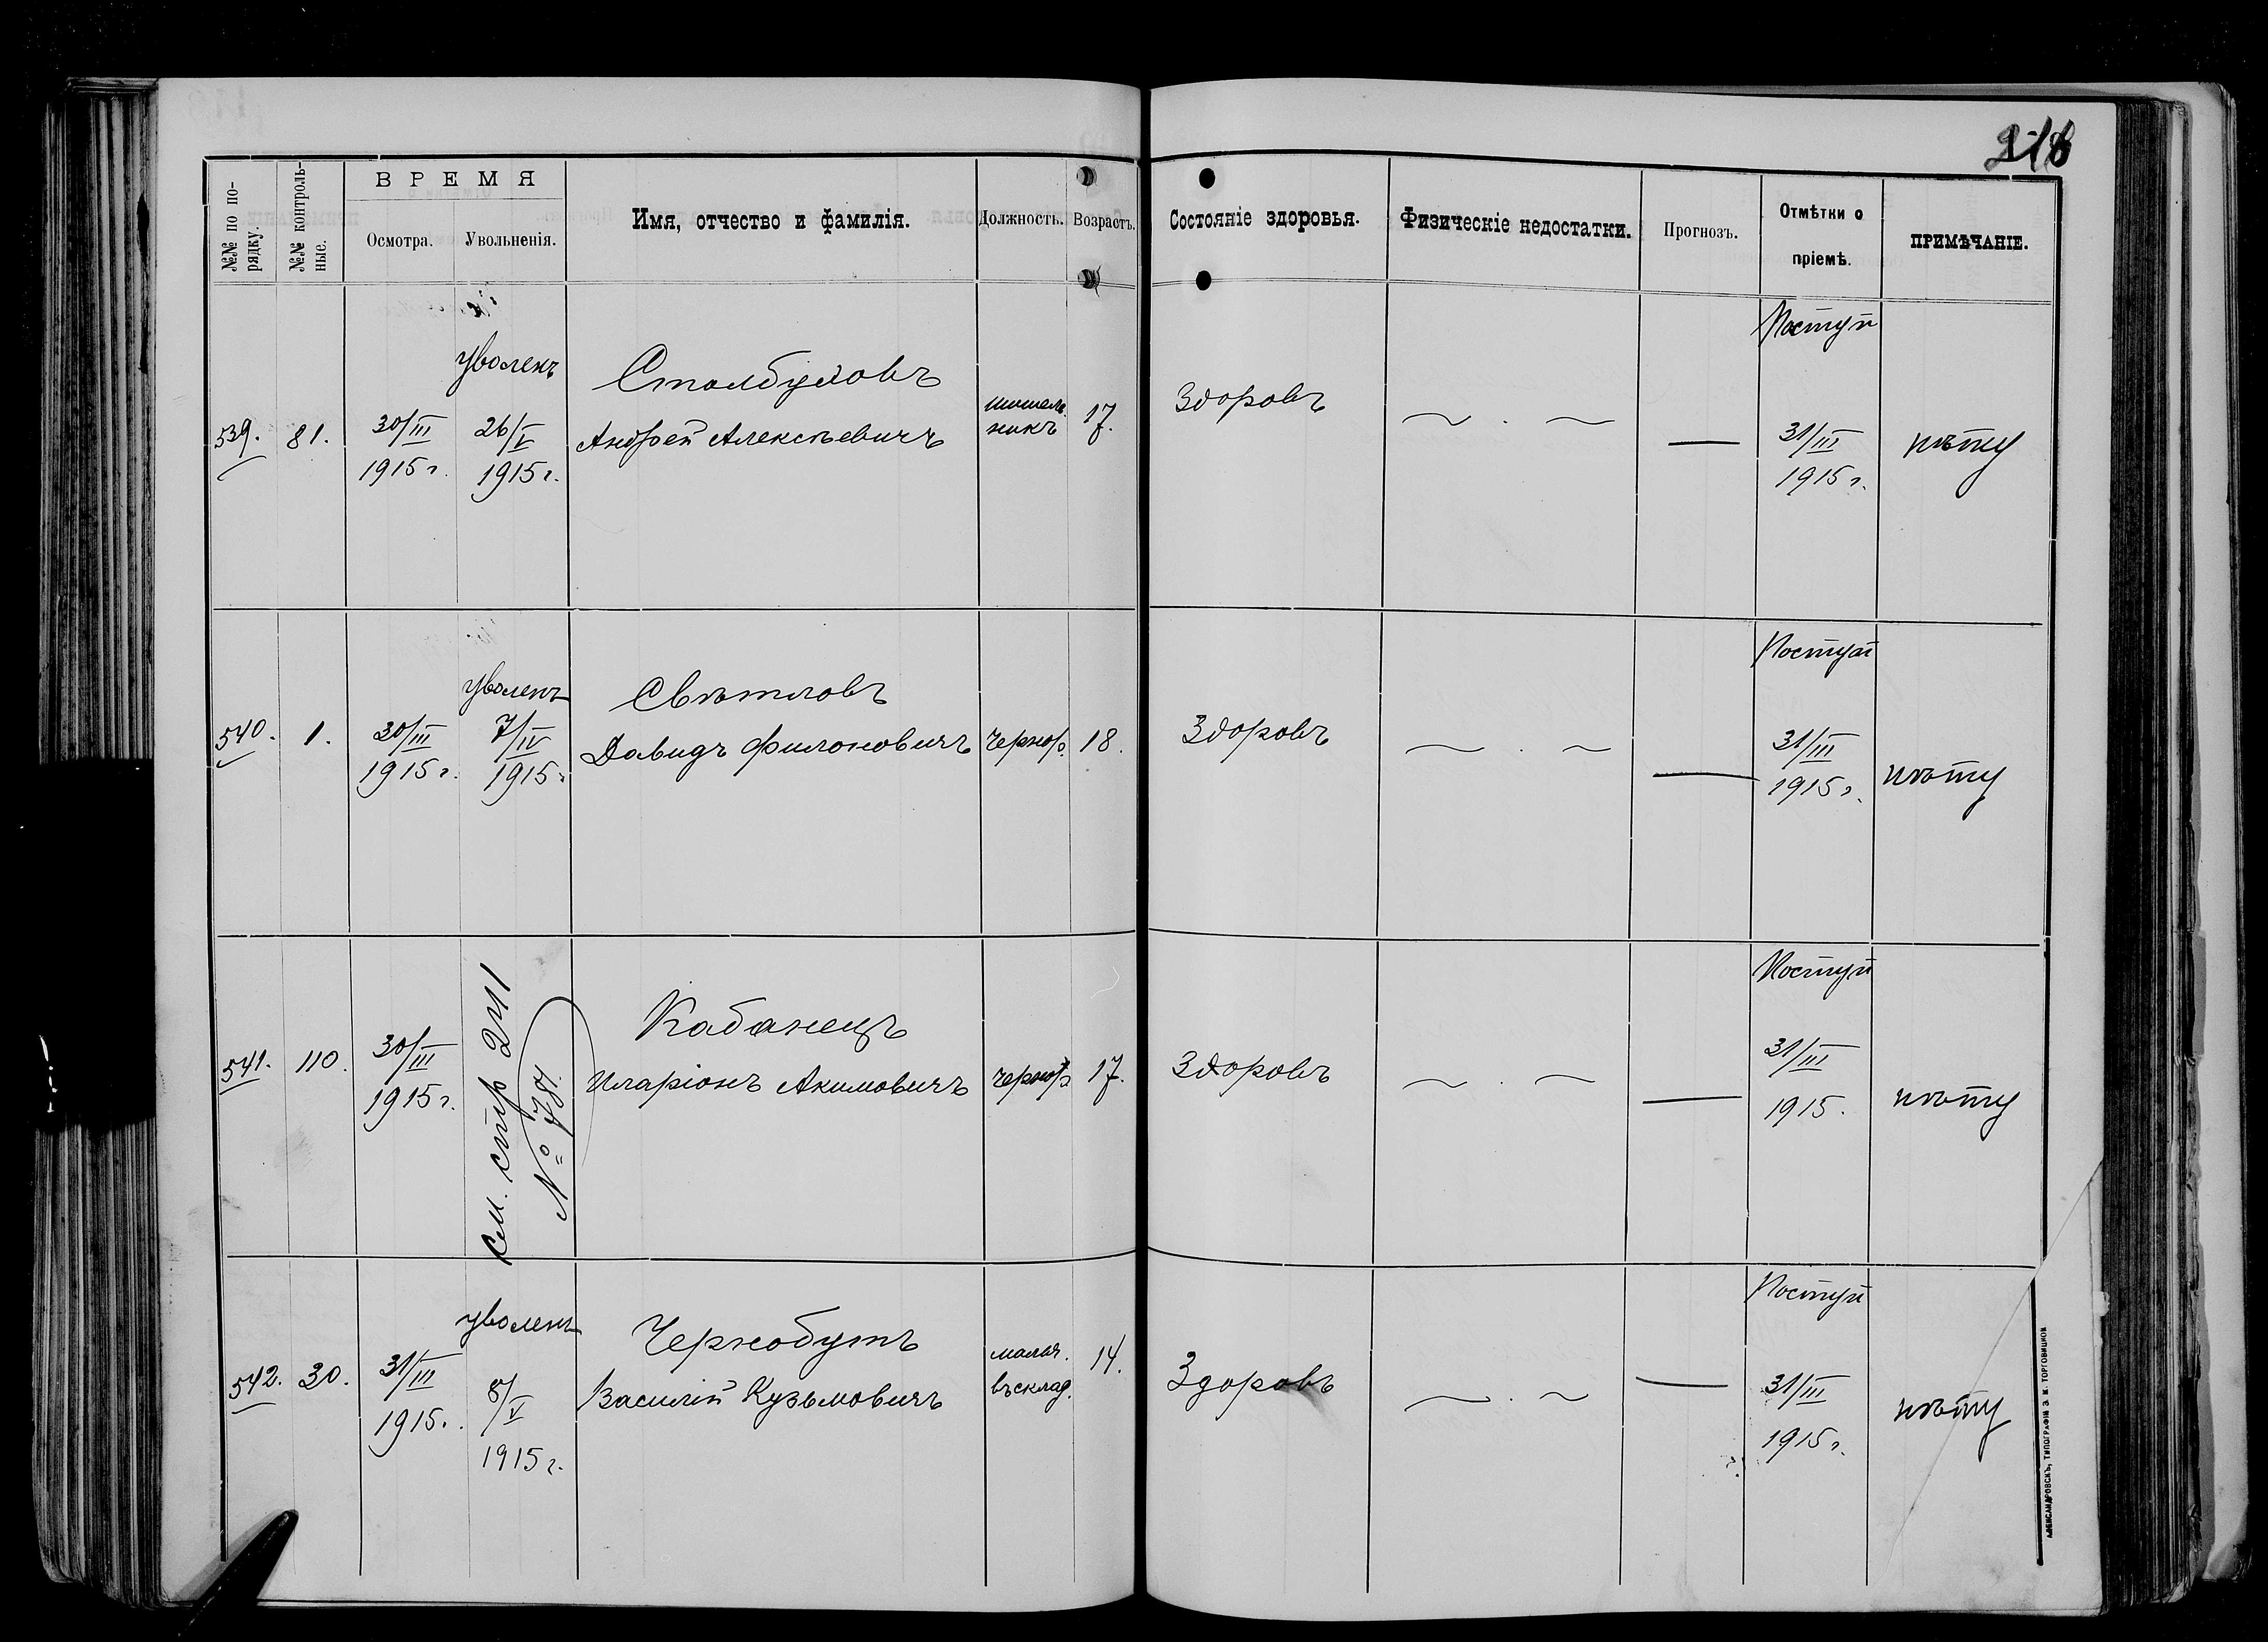 №№ по по-
рядку.
№№ контроль-
ные.
ВРЕМЯ
Осмотра.
Увольненія.
Имя, отчество и фамилія.
Должность.
Возрастъ.
Состояніе здоровья.
Физическіе недостатки.
Прогнозъ.
Отмѣтки о
пріемѣ.
ПРИМѢЧАНІЕ.
539.
81.
30/III
1915 г.
уволенъ
26/V
1915 г.
Андрей Алексѣевичъ
17.
Здоровъ
—
Поступ
31/III
1915 г.
нѣту
540.
1.
30/III
1915 г.
уволенъ
7/IV
1915 г
Свѣтловъ
Давидъ Филоновичъ
чернор.
18.
Здоровъ
—
Поступ
31/III
1915 г.
нѣту
541.
110.
30/III
1915 г.
См. стр 241
№ 781.
Кабанецъ
Иларіонъ Акимовичъ
чернор
17.
Здоровъ
—
Поступ
31/III
1915.
нѣту
542.
30.
31/III
1915 г.
уволенъ
8/V
1915 г.
Чернобутъ
Василій Кузьмовичъ
мальч.
въ склад.
14.
Здоровъ
—
Поступ
31/III
1915 г.
нѣту
АЛЕКСАНДРОВСКЪ, ТИПОГРАФІЯ Э. М. ТОРГОВИЦКОЙ